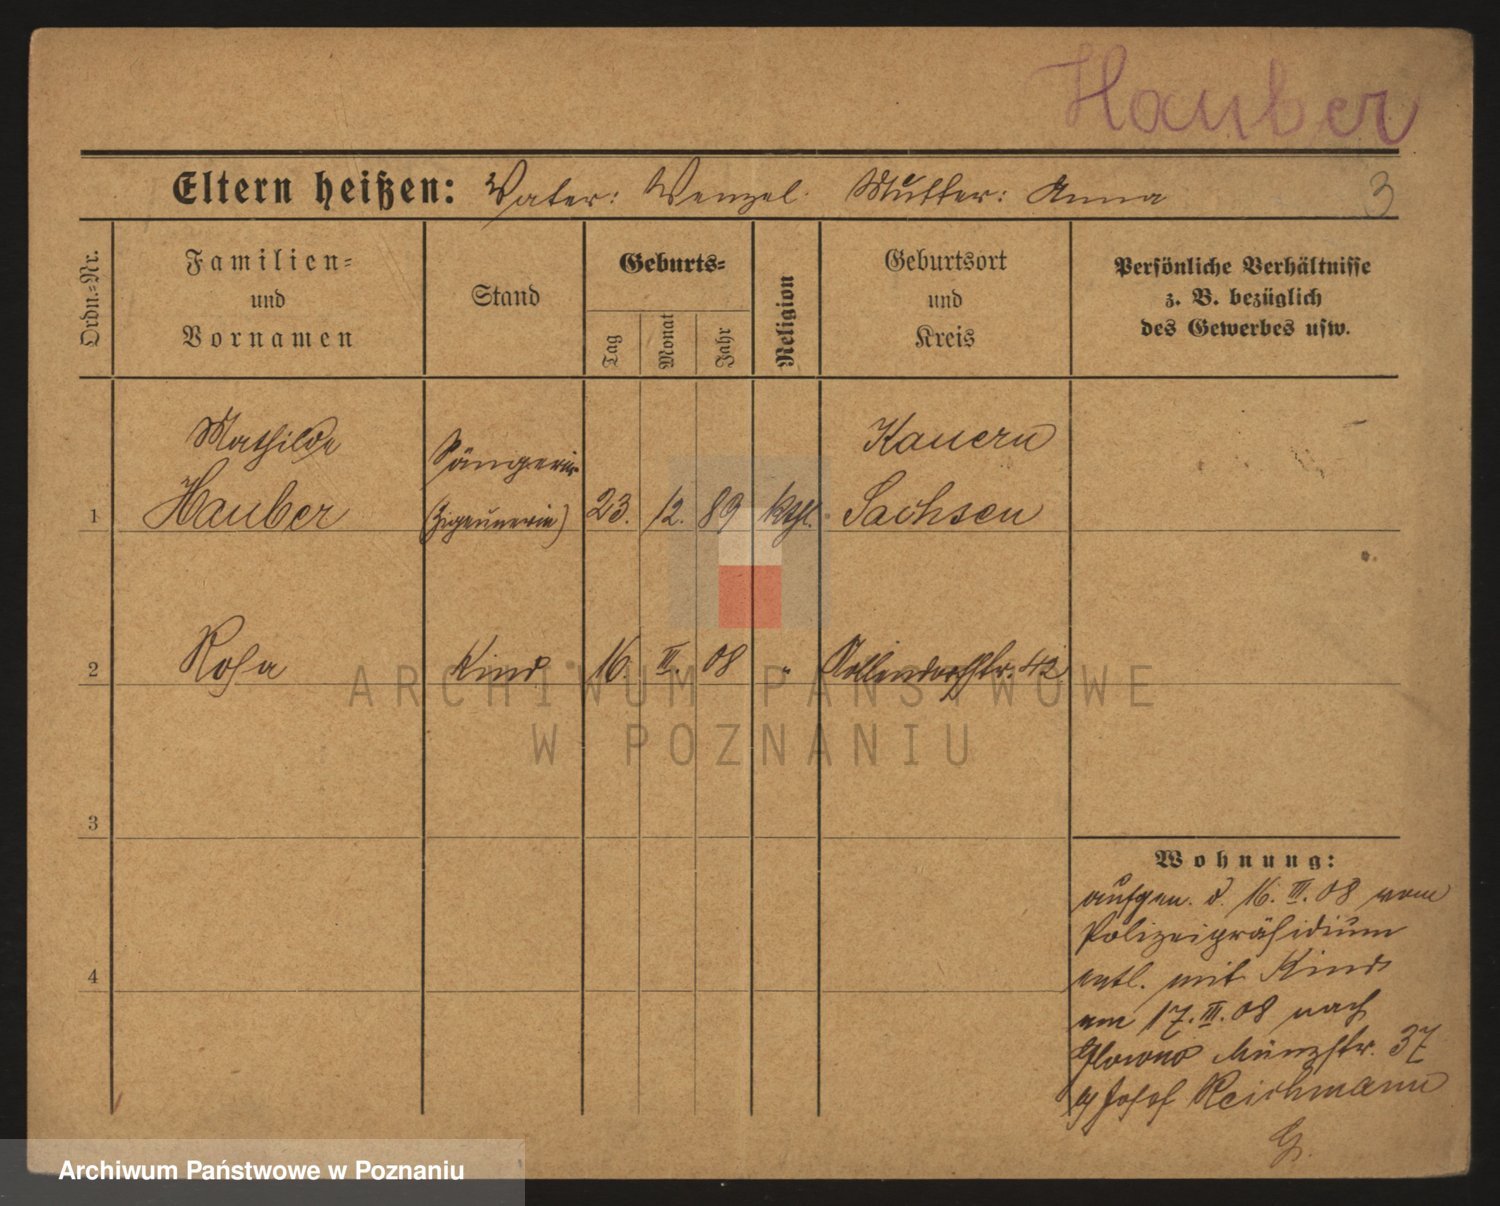 Hauber
Eltern heißen: Vater: Wenzel. Mutter: Anna
3
Ordn.=Nr.
Familien=
und
Vornamen
Stand
Geburts=
Tag
Monat
Jahr
Religion
Geburtsort
und
Kreis
Persönliche Verhältnisse
z. B. bezüglich
des Gewerbes usw.
Mathilde Kauern
Sängerin
1 Hauber (Zigeunerin) 23. 12. 89 kthl. Sachsen
2 Rosa Kind 16. III. 08 " Kollendorfstr. 42
ARCHIWUM PAŃSTWOWE
W POZNANIU
3
Wohnung:
aufgen. d. 16. III. 08 vom
Polizeipräsidium
4
entl. mit Kind
am 17. III. 08 nach
Glowno Münzstr. 37
b/ Josef Reichmann
G.
Archiwum Państwowe w Poznaniu